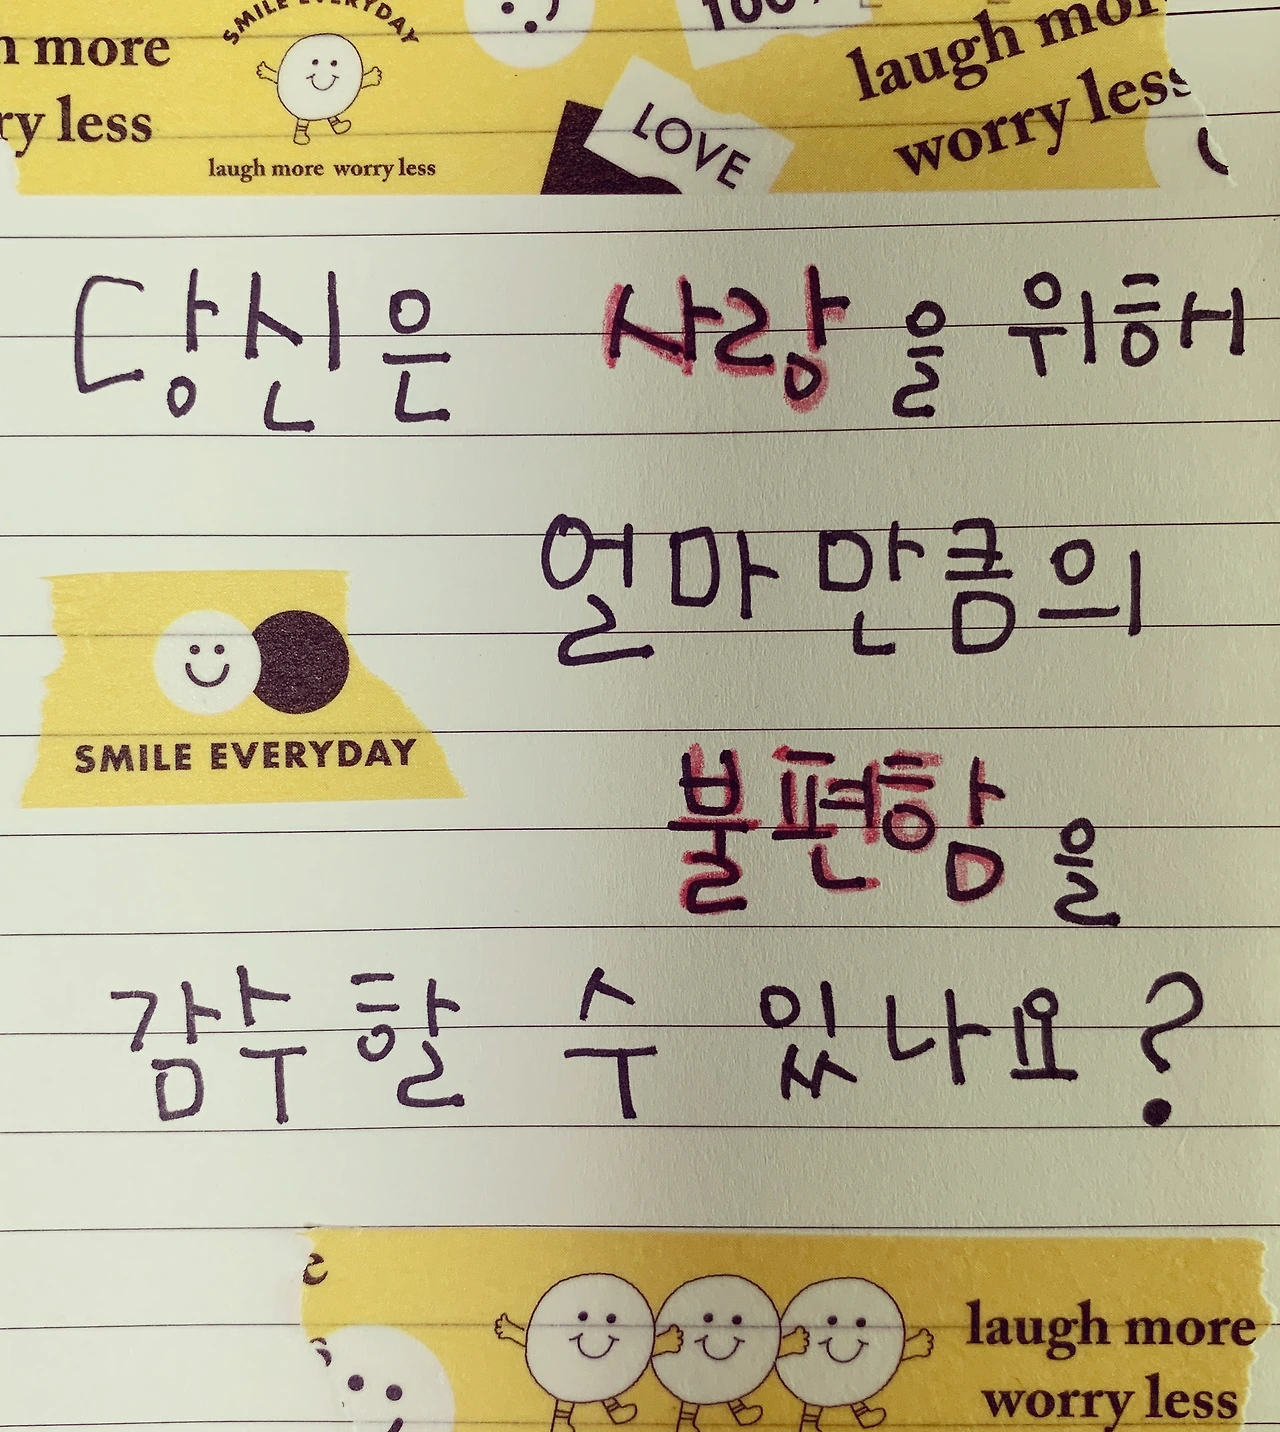 SMILE EVERYDAY
more
less
laugh more worry less
LOVE
laugh
worry less
당신은 사랑을 위해서
얼마만큼의
SMILE EVERYDAY
불편함을
감수할 수 있나요?
laugh more
worry less